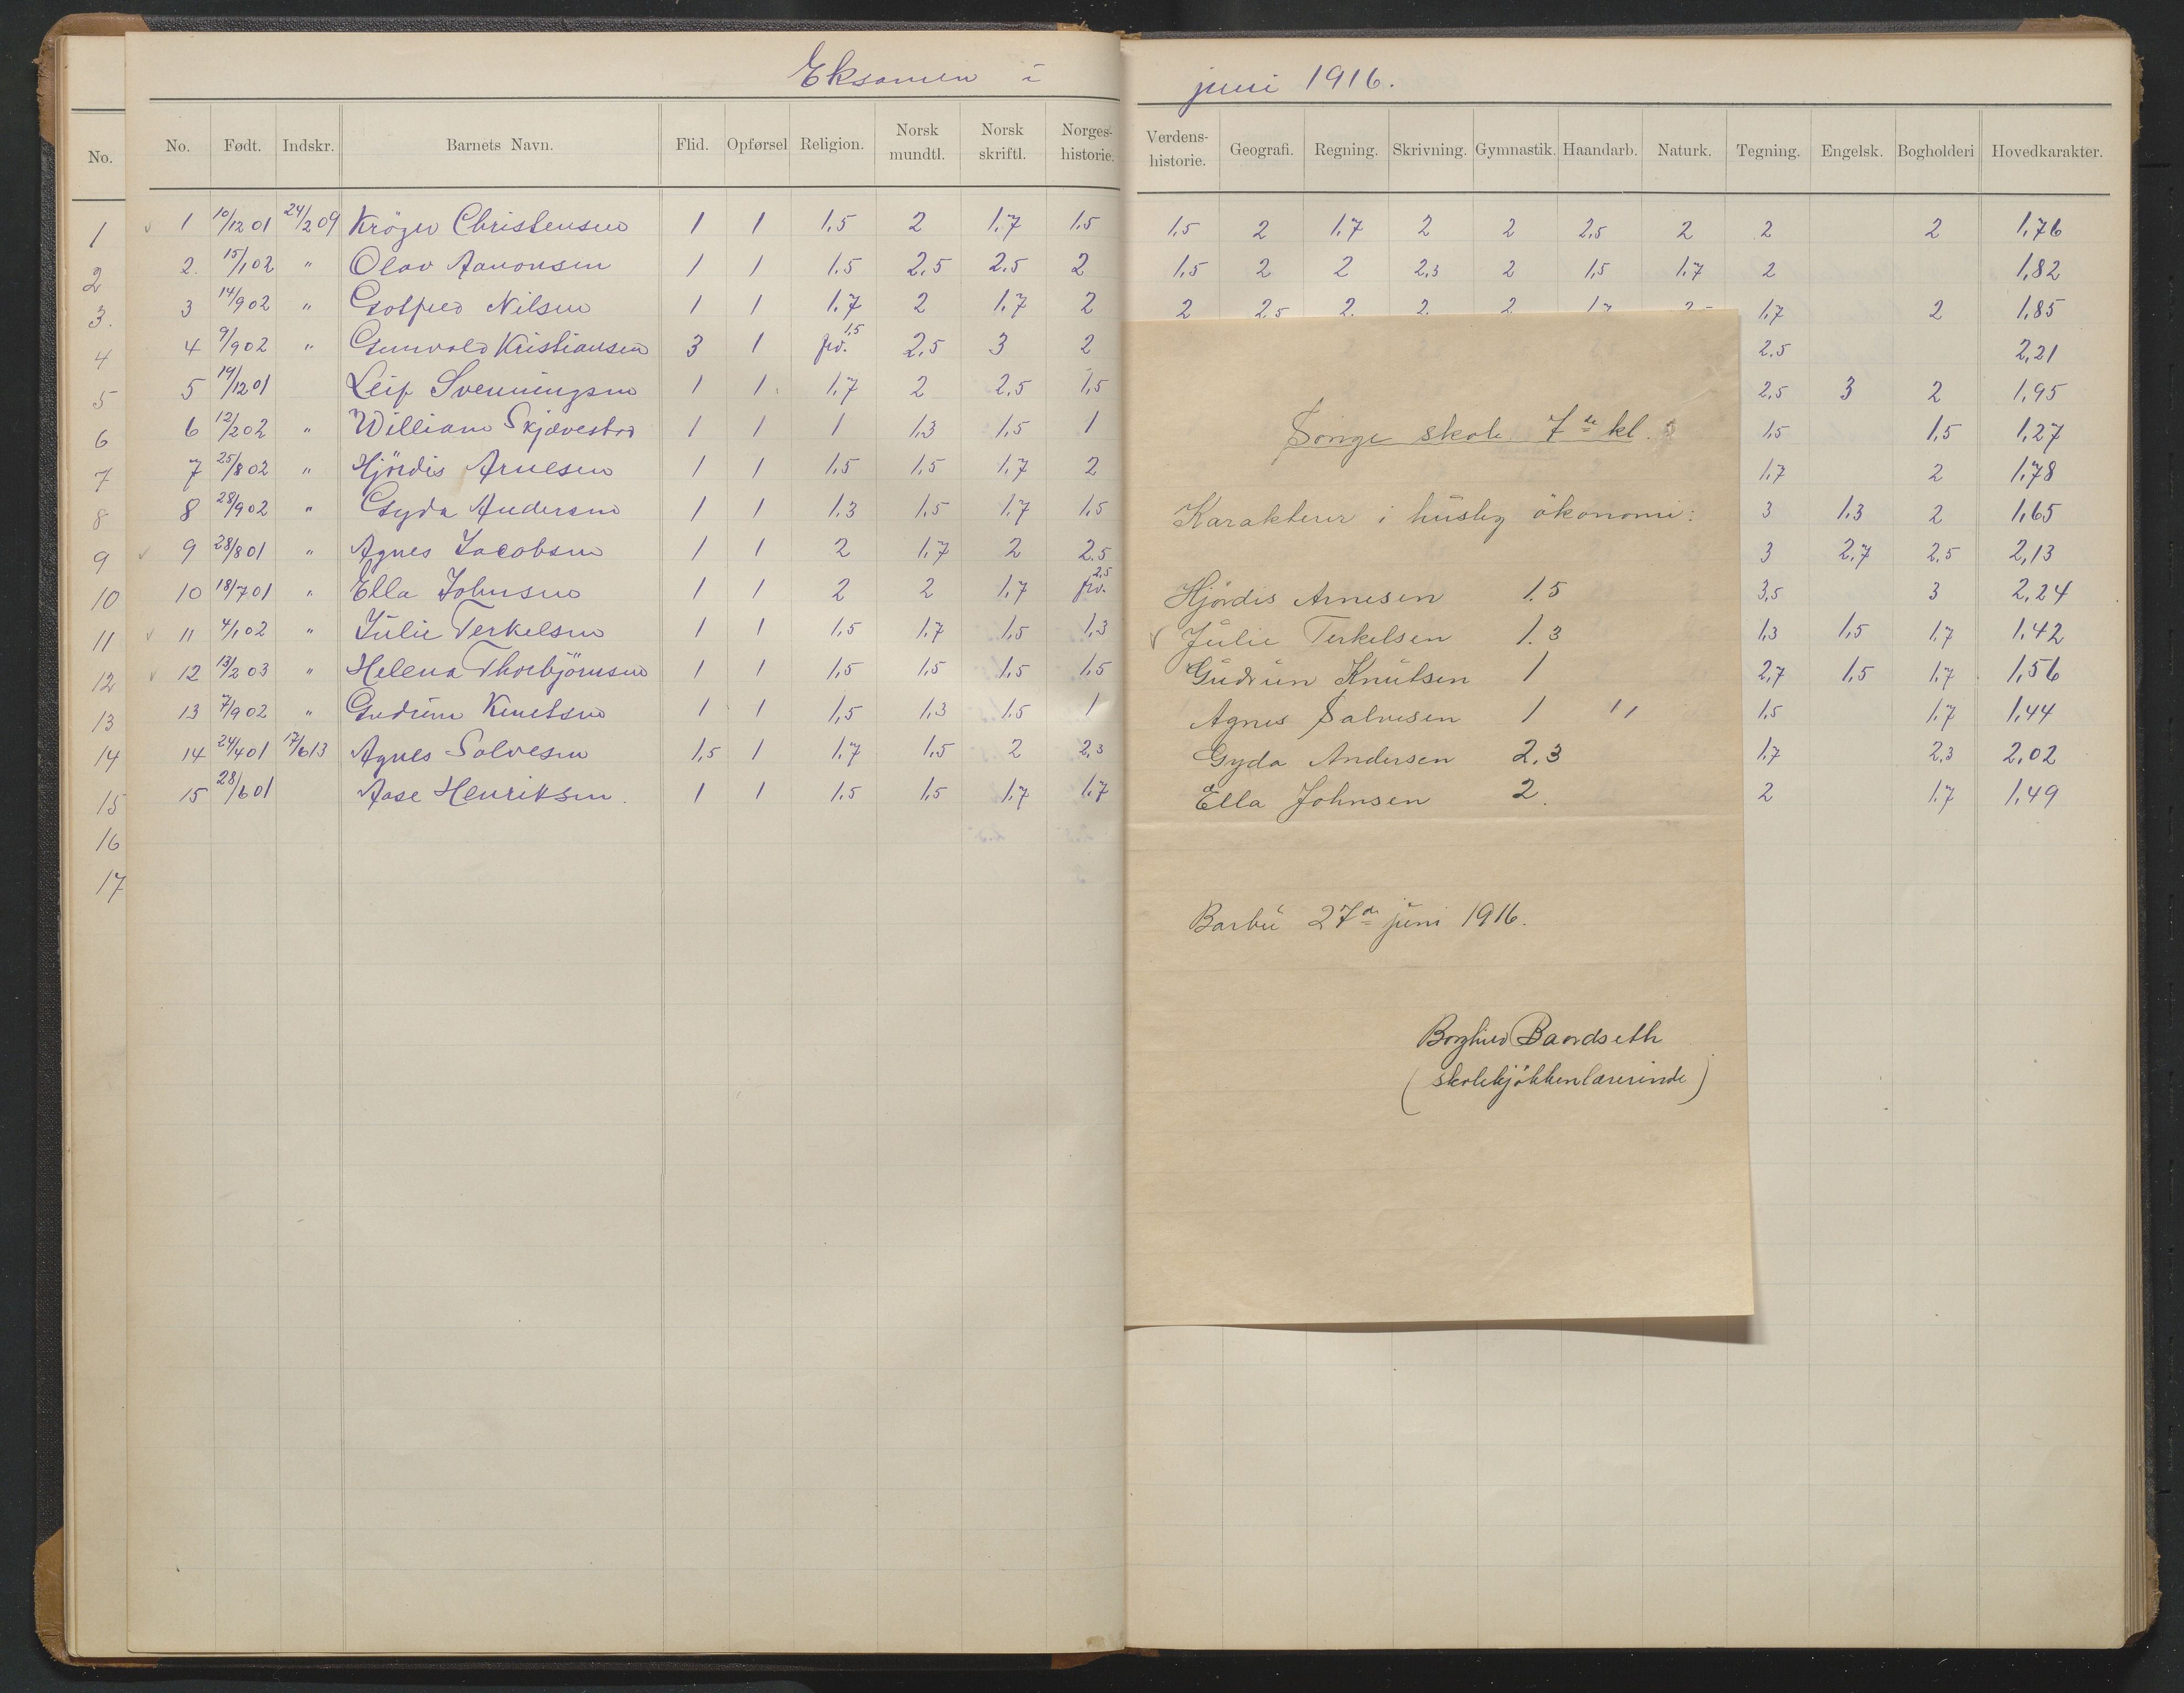 Eksamen i juni 1916.
No. No. Født. Indskr. Barnets Navn. Flid. Opførsel Religion. Norsk mundtl. Norsk skriftl. Norges-historie. Verdens-historie. Geografi. Regning. Skrivning. Gymnastik. Haandarb. Naturk. Tegning. Engelsk. Bogholderi Hovedkarakter.
1 1 10/12 01 24/2 09 Kröger Christensen 1 1 1,5 2 1,7 1,5 1,5 2 1,7 2 2 2,5 2 2 2 1,76
2 2. 15/1 02 " Olav Aanonsen 1 1 1.5 2,5 2.5 2 1,5 2 2 2,3 2 1,5 1,7 2 1,82
3. 3 14/9 02 " Gotfred Nilsen 1 1 1.7 2 1,7 2 2 2,5 2. 2. 2 1,7 1,7 2 1,85
4 4 9/9 02 " Gunvald Kristiansen 3 1 1,5 2,5 3 2 2.5 2,21
5 5 19/12 01 Leif Svenningsen 1 1 1,7 2 2,5 1,5 2,5 3 2 1,95
6 6 12/2 02 " William Skjævestad 1 1 1 1,3 1,5 1 1,5 1,5 1,27
7 7 25/8 02 " Hjördis Arnesen 1 1 1,5 1,5 1,7 2 1,7 2 1,78
8 8 28/9 02 " Gyda Andersen 1 1 1,3 1,5 1,7 1,5 3 1,3 2 1,65
9 9 28/8 01 " Agnes Jacobsen 1 1 2 1,7 2 2.5 3 2,7 2,5 2,13
10 10 18/7 01 " Ella Johnsen 1 1 2 2 1,7 2,5 3,5 3 2,24
11 11 4/1 02 " Julie Terkelsen 1 1 1,5 1,7 1,5 1,3 1,3 1,5 1,7 1,42
12 12 13/2 03 " Helena Thorbjörnsen 1 1 1,5 1,5 1,5 1,5 2,7 1,5 1,7 1,56
13 13 7/9 02 " Gudrun Knutsen 1 1 1,5 1,3 1.5 1 1,5 1,7 1,44
14 14 24/4 01 17/6 13 Agnes Salvesen 1,5 1 1,7 1,5 2 2,3 1,7 2,3 2,02
15 15 28/6 01 Aase Henriksen. 1 1 1.5 1,5 1,7 1,7 2 1,7 1,49
16
17
Songe skole 7de kl.
Karakterer i huslig ökonomi:
Hjördis Arnesen 1.5
Julie Terkelsen 1.3
Gudrun Knutsen 1
Agnes Salvesen 1 "
Gyda Andersen 2,3
Ella Johnsen 2.
Barbu 27de juni 1916.
Borghild Baardseth
(skolekjökkenlærerinde)